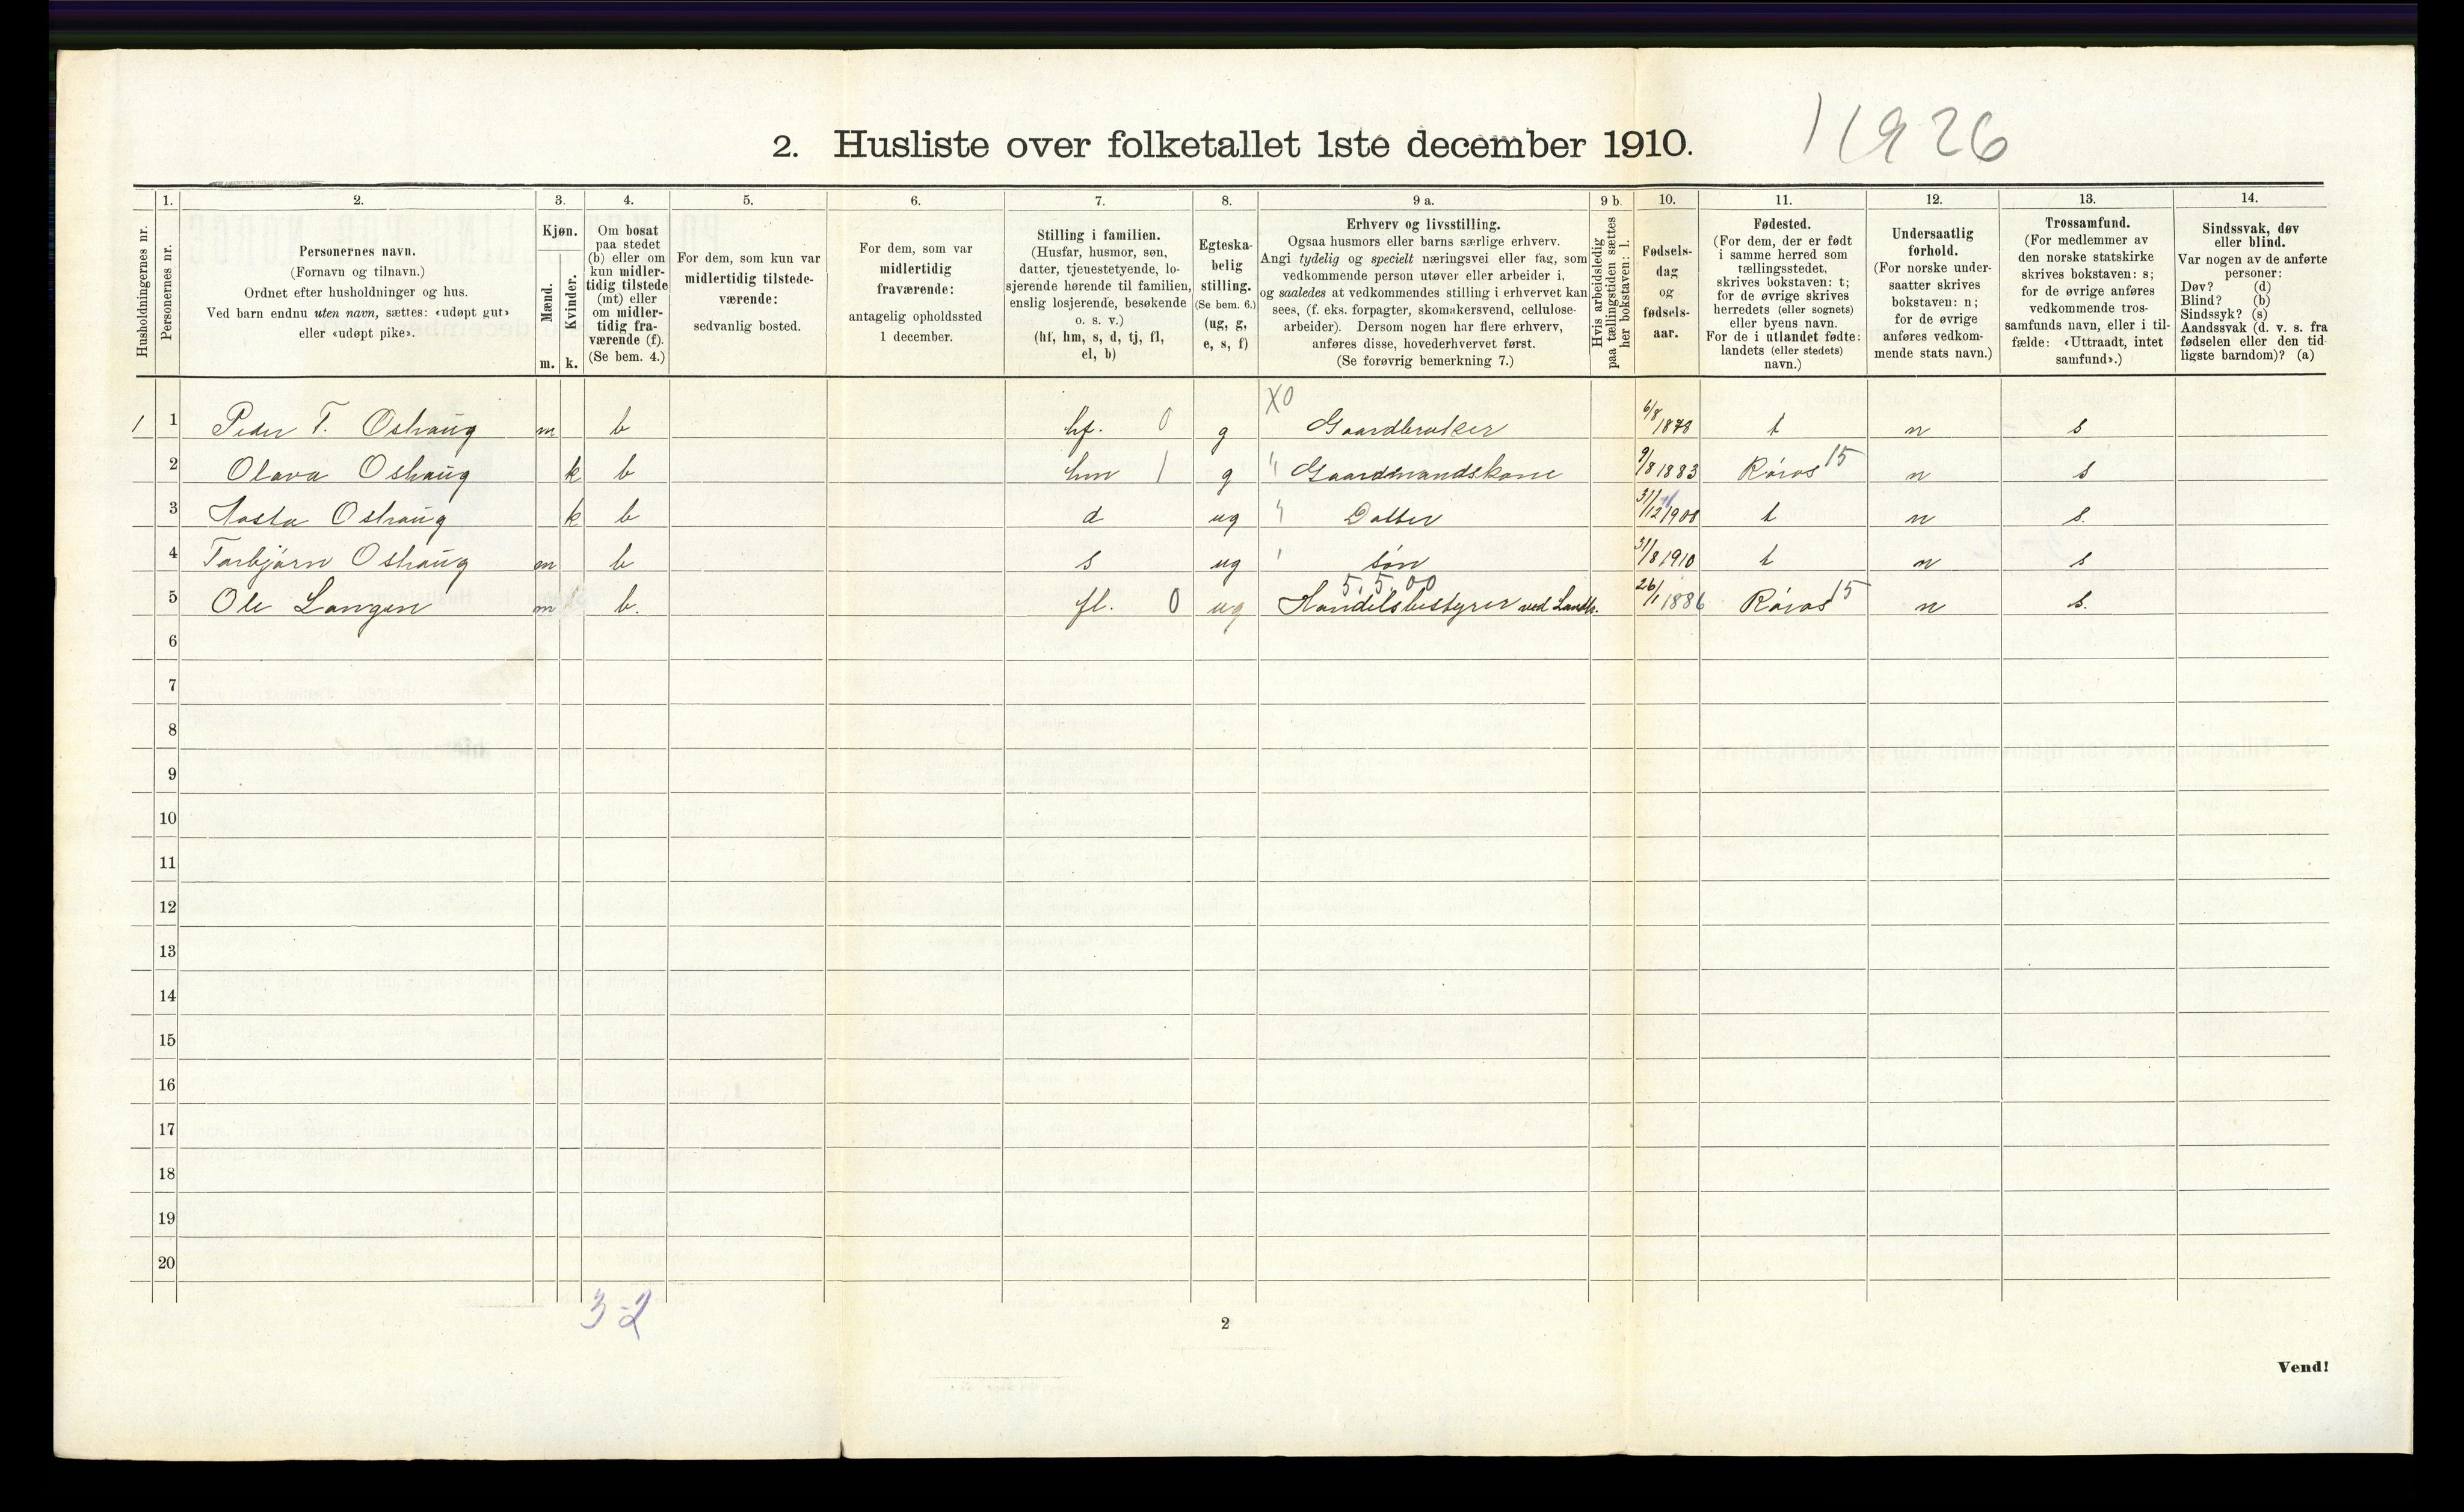 2. Husliste over folketallet 1ste december 1910.
1926
Husholdningernes nr.
1.
Personernes nr.
2.
Personernes navn.
(Fornavn og tilnavn.)
Ordnet efter husholdninger og hus.
Ved barn endnu uten navn, sættes: «udøpt gut»
eller «udøpt pike».
3.
Kjøn.
Mænd.
Kvinder.
m. k.
4.
Om bosat
paa stedet
(b) eller om
kun midler-
tidig tilstede
(mt) eller
om midler-
tidig fra-
værende (f).
(Se bem. 4.)
5.
For dem, som kun var
midlertidig tilstede-
værende:
sedvanlig bosted.
6.
For dem, som var
midlertidig
fraværende:
antagelig opholdssted
1 december.
7.
Stilling i familien.
(Husfar, husmor, søn,
datter, tjenestetyende, lo-
sjerende hørende til familien,
enslig losjerende, besøkende
o. s. v.)
(hf, hm, s, d, tj, fl,
el, b)
8.
Egteska-
belig
stilling.
(Se bem. 6.)
(ug, g,
e, s, f)
9 a.
Erhverv og livsstilling.
Ogsaa husmors eller barns særlige erhverv.
Angi tydelig og specielt næringsvei eller fag, som
vedkommende person utøver eller arbeider i,
og saaledes at vedkommendes stilling i erhvervet kan
sees, (f. eks. forpagter, skomakersvend, cellulose-
arbeider). Dersom nogen har flere erhverv,
anføres disse, hovederhvervet først.
(Se forøvrig bemerkning 7.)
9 b.
Hvis arbeidsledig
paa tællingstiden sættes
her bokstaven: l.
10.
Fødsels-
dag
og
fødsels-
aar.
11.
Fødested.
(For dem, der er født
i samme herred som
tællingsstedet,
skrives bokstaven: t;
for de øvrige skrives
herredets (eller sognets)
eller byens navn.
For de i utlandet fødte:
landets (eller stedets)
navn.)
12.
Undersaatlig
forhold.
(For norske under-
saatter skrives
bokstaven: n;
for de øvrige
anføres vedkom-
mende stats navn.)
13.
Trossamfund.
(For medlemmer av
den norske statskirke
skrives bokstaven: s;
for de øvrige anføres
vedkommende tros-
samfunds navn, eller i til-
fælde: «Uttraadt, intet
samfund».)
14.
Sindssvak, døv
eller blind.
Var nogen av de anførte
personer:
Døv? (d)
Blind? (b)
Sindssyk? (s)
Aandssvak (d. v. s. fra
fødselen eller den tid-
ligste barndom)? (a)
X0
1 1 Peder T. Oshaug m b hf. 0 g Gaardbruker 6/8 1878 t n s
2 Olava Oshaug k b hm 1 g " Gaardmandskone 9/8 1883 Røros 15 n s
3 Aasta Oshaug k b d ug " Datter 31/12 1908 t n s.
4 Torbjørn Oshaug m b s ug " søn 31/8 1910 t n s
5.5.00
5 Ole Langen m b. fl. 0 ug Handelsbestyrer ved Landh. 26/1 1886 Røros 15 n s.
6
7
8
9
10
11
12
13
14
15
16
17
18
19
20
3-2
2
Vend!